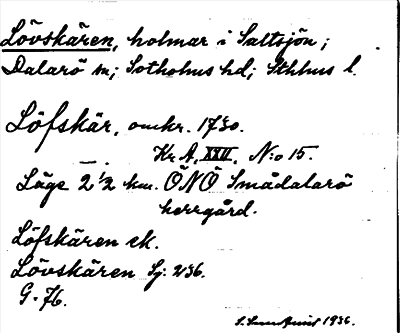 Lövskären, holmar i Saltsjön;
Dalarö sn; Sotholms hd; Sthlms l.
Löfskär, omkr. 1730.
Kr. A. XXII. N:o 15.
Läge 2 1/2 km. ÖNÖ Smådalarö
herrgård.
Löfskären ek.
Lövskären Sj: 236.
G. 76.
1936.